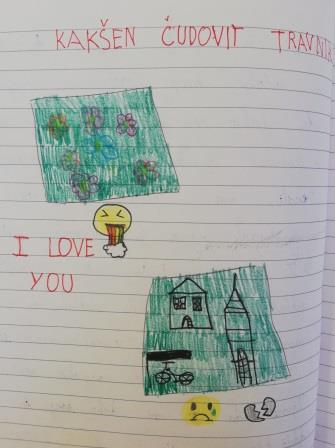 KAKŠEN ČUDOVIT TRAVNIK
I LOVE
YOU